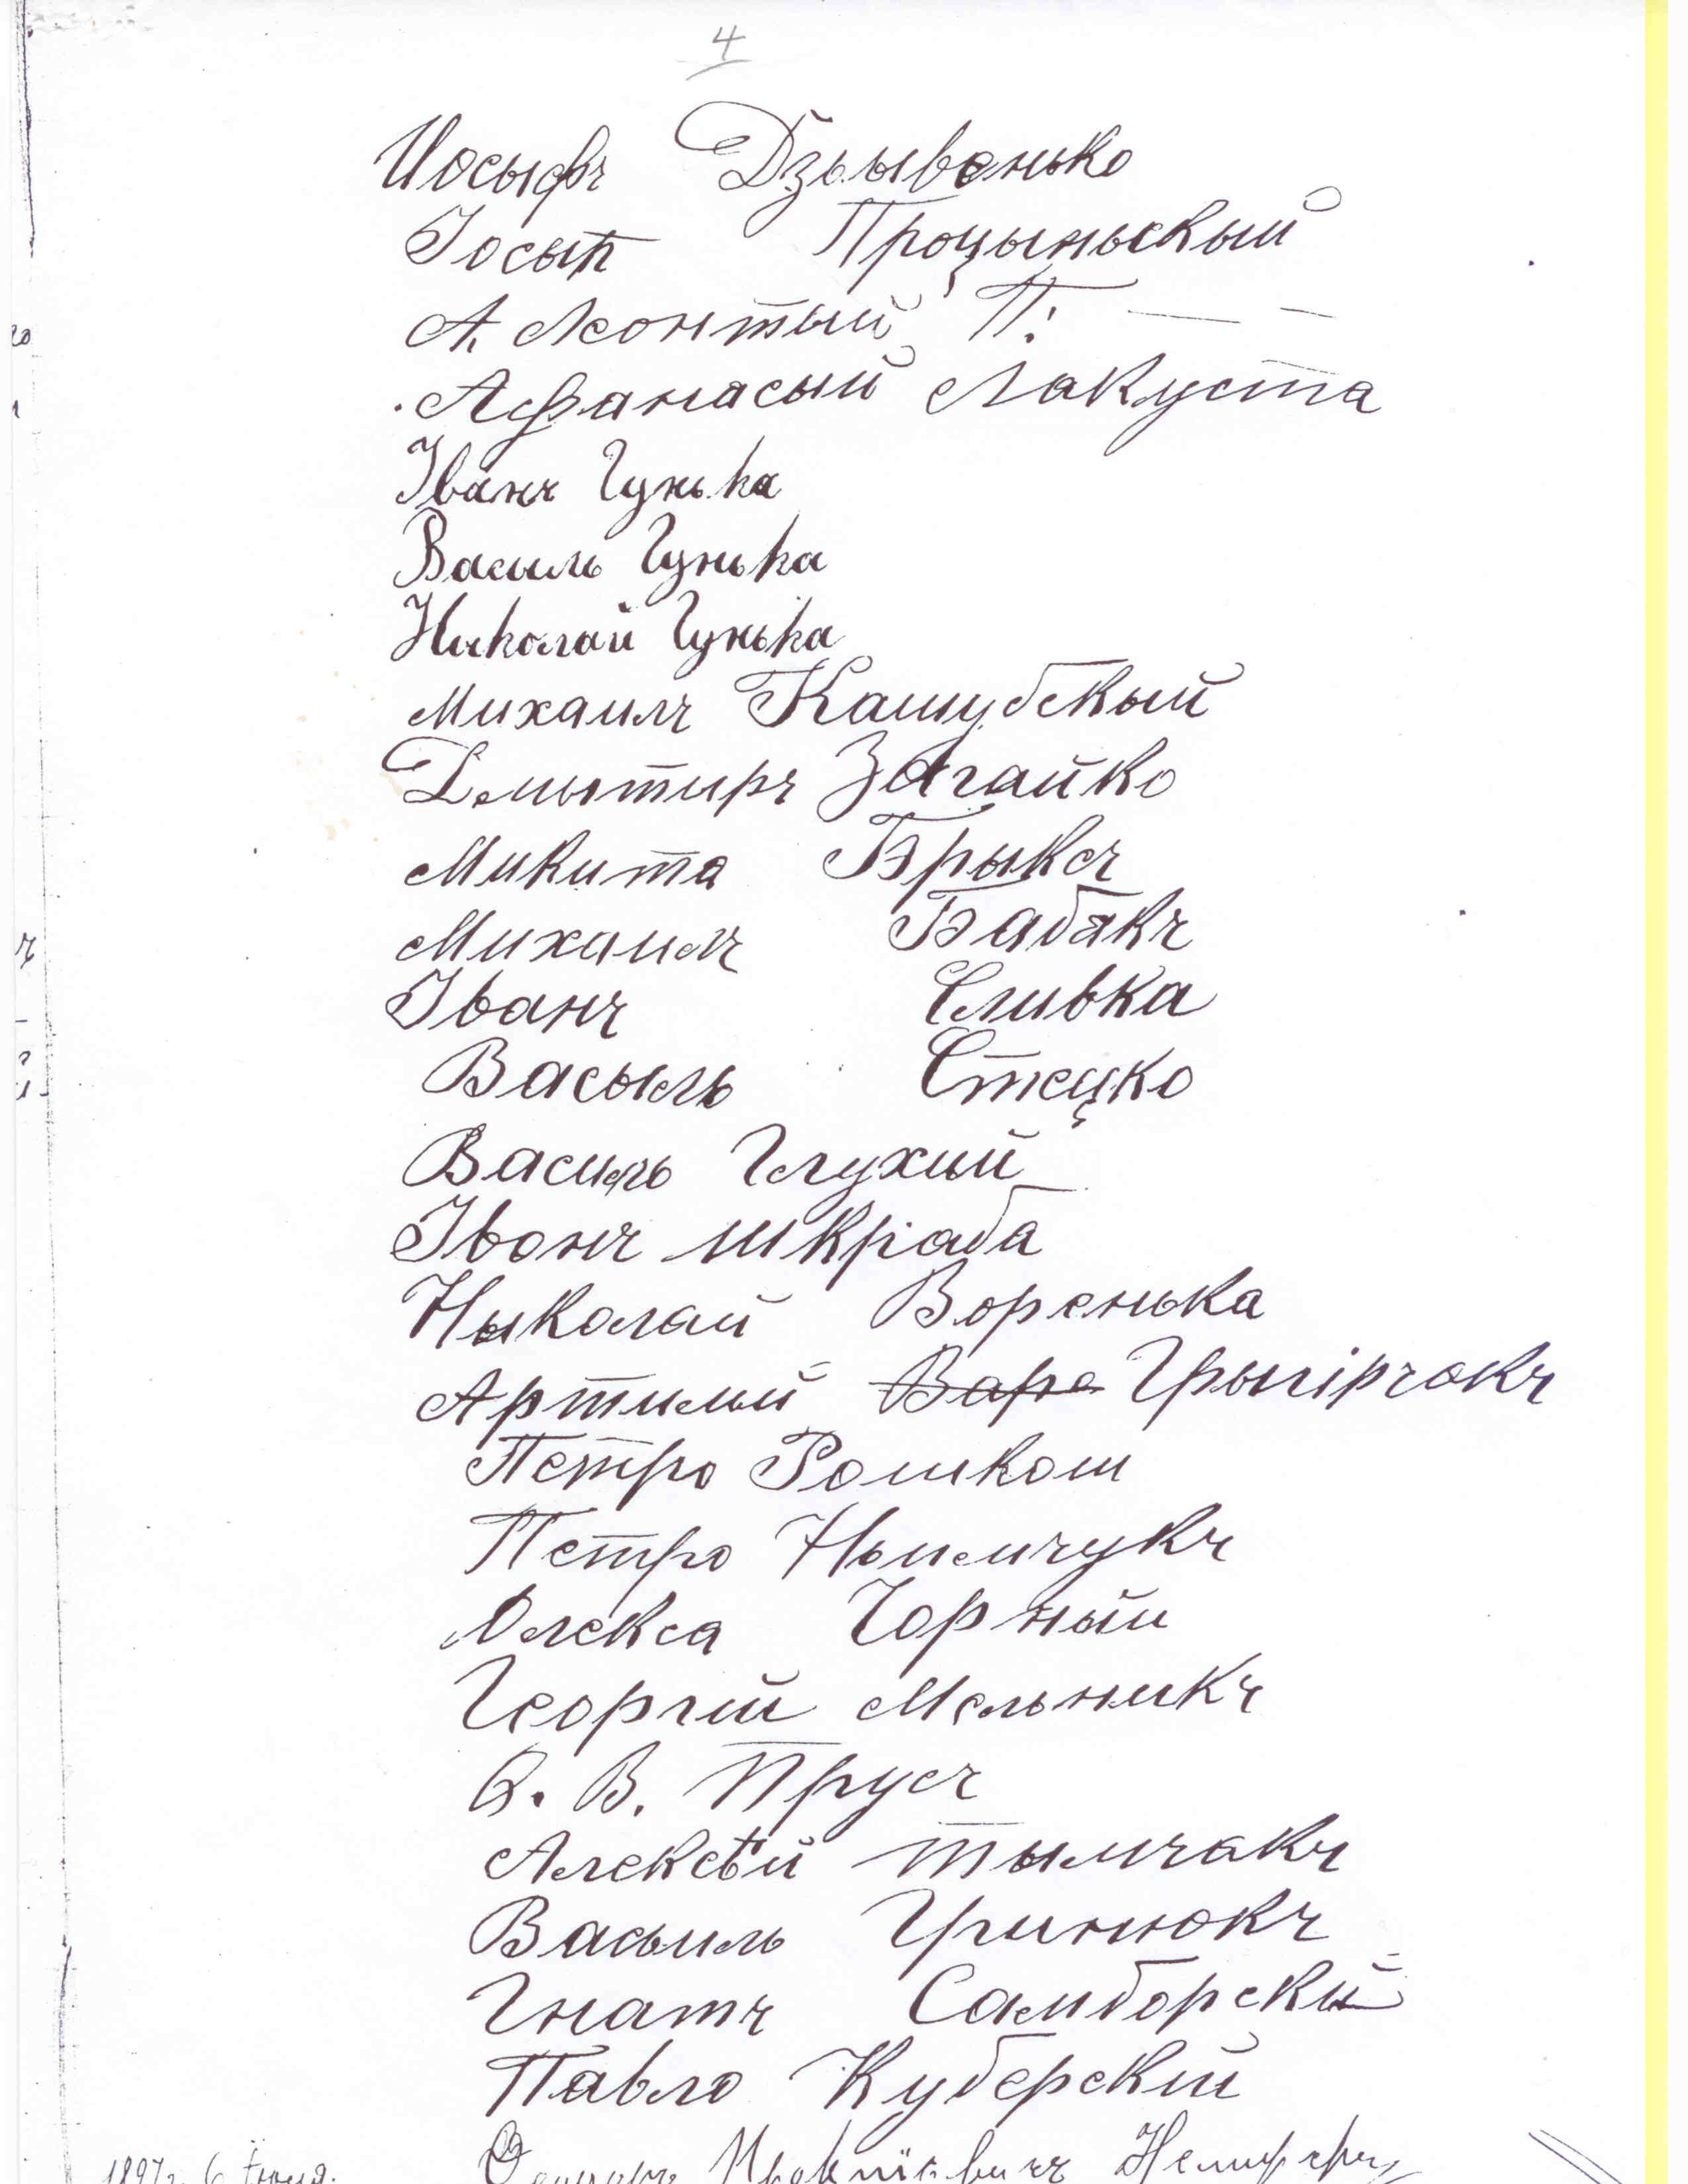 4
Иосыфъ Дзьывенько
Іосып Процыньскый
А. Леонтый П. — —
Афанасый Лакуста
Іванъ Гунька
Василь Гунька
Николай Гунька
Михаилъ Кашубскый
Демытиръ Загайко
Микита Брыксъ
Михаилъ Бабякъ
Іванъ Сливка
Васыль Стецко
Василь Глухий
Іванъ Шкраба
Ныколай Воренька
Артимий Варе Грыгірчакъ
Петро Ромкош
Петро Нымчукъ
Олекса Чорный
Георгий Мельникъ
В. Прусъ
Алексѣй Тымчакъ
Васыль Гринюкъ
Гнатъ Самборский
Павло Куберский
1897 г. 6 Іюня.